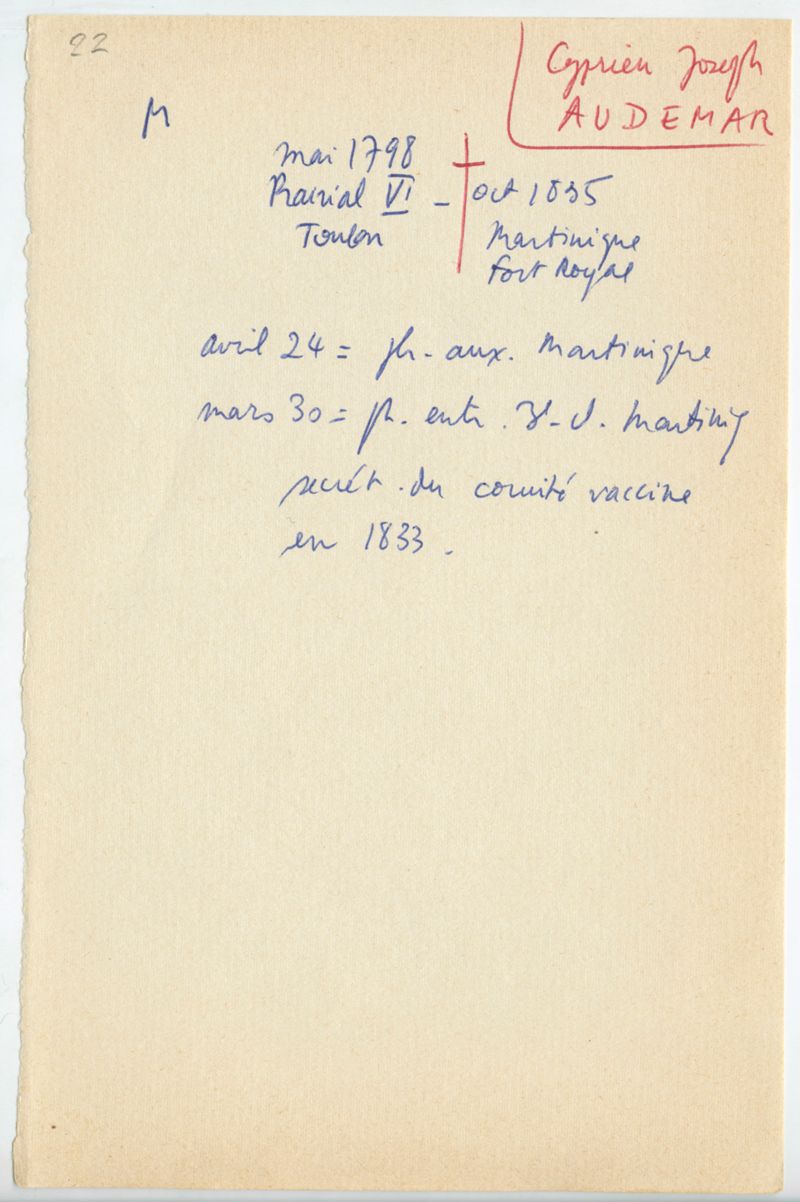 22
Cyprien Joseph
AUDEMAR
M
mai 1798
Prairial VI - † oct 1835
Toulon
Martinique
Fort Royal
avril 24 = ph. aux. Martinique
mars 30 = ph. entr. Martiniq
secrét. du comité vaccine
en 1833.